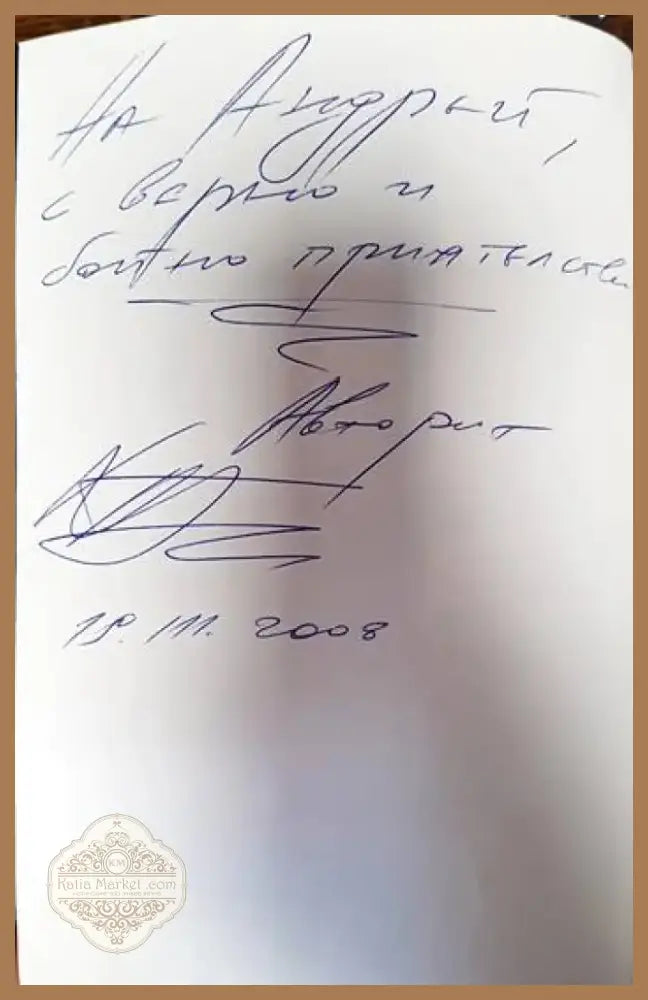 На Андрей,
с вярно и
бойно приятелство
Авторит
19.III.2008
KM
Katia Market .com